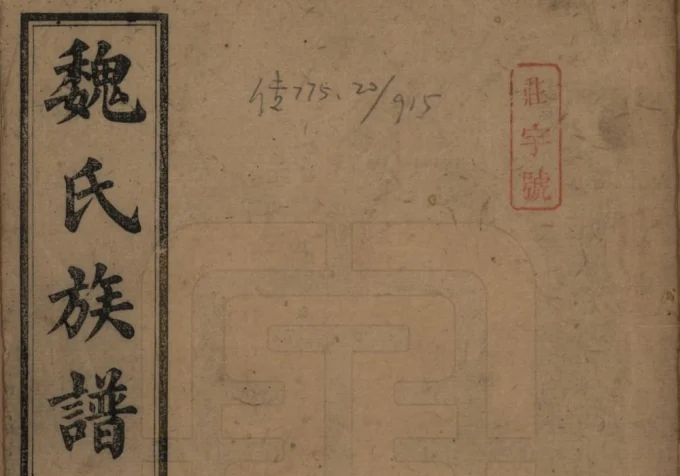 魏氏族譜
775.20/915
字號